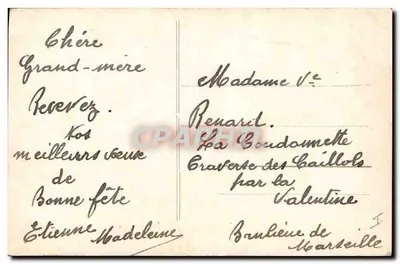 Chère
Grand-mère
Recevez.
Vos
meilleurrs vœux
de
Bonne fête
Etienne Madeleine
Madame Ve
Renard.
La Condamette
Traverse des Caillols
par la
Valentine
Banlieue de
Marseille